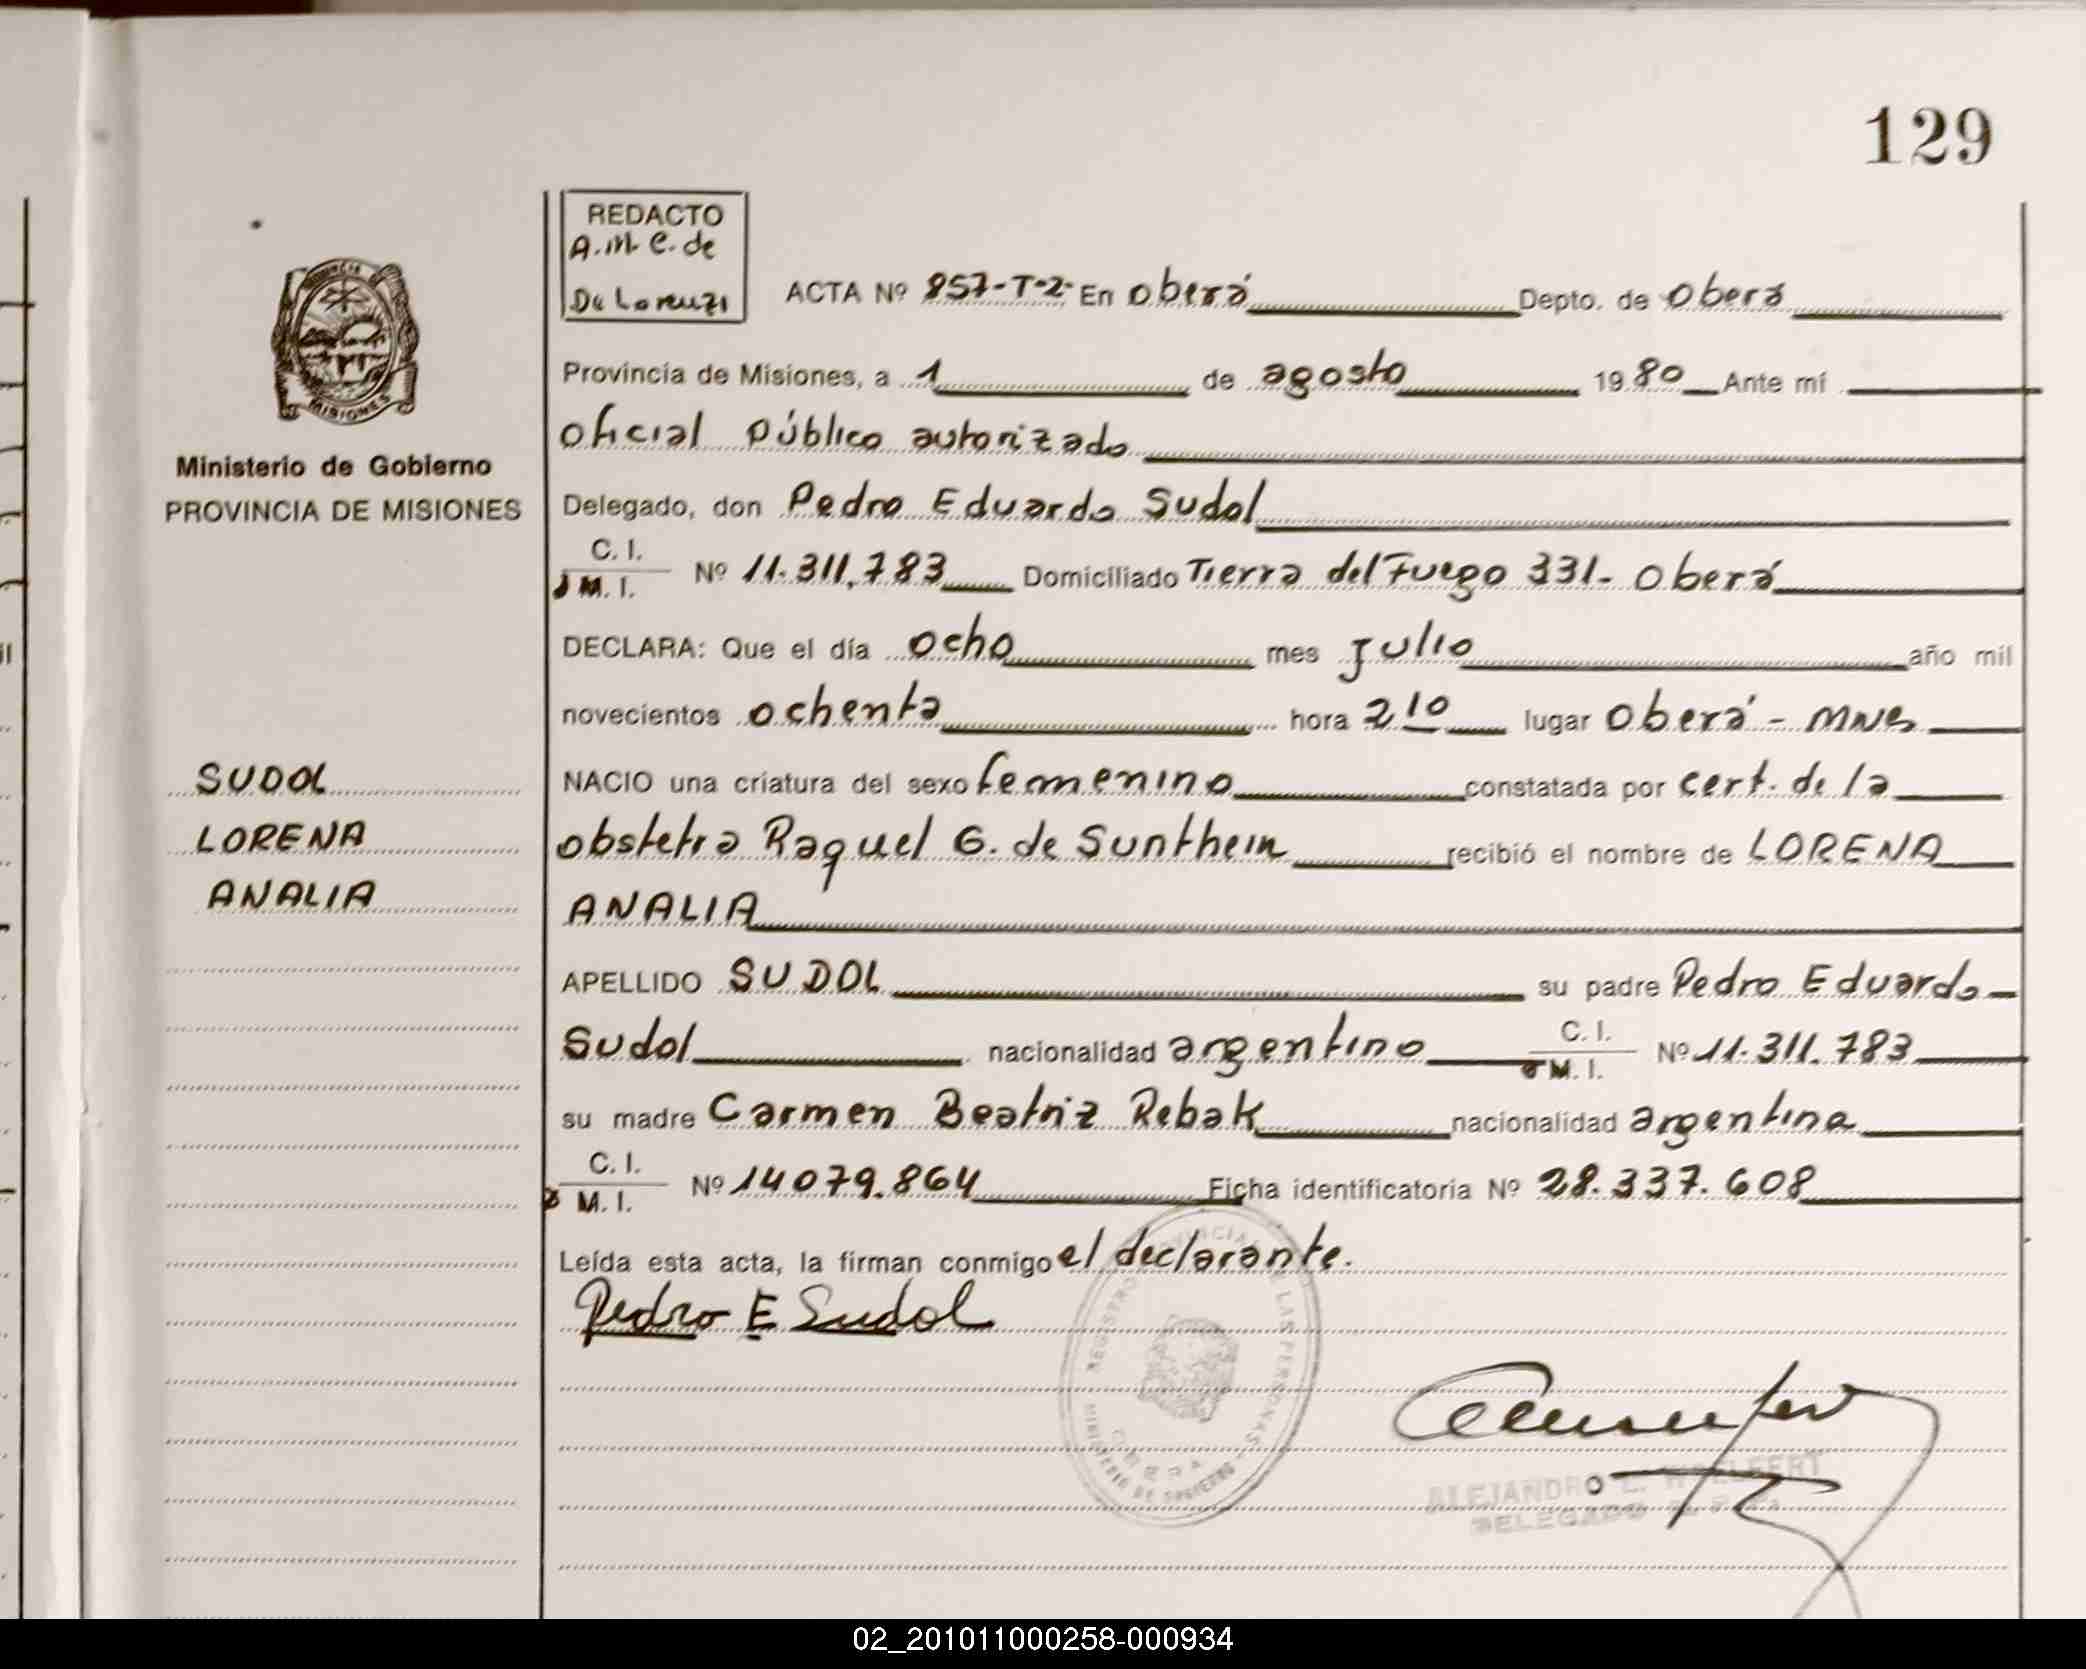 129
REDACTO
A.M.C. de
De Lorenzi
ACTA Nº 857-T-2- En Oberá Depto. de Oberá
Provincia de Misiones, a 1 de agosto 1980 Ante mí
oficial Público autorizado
Delegado, don Pedro Eduardo Sudol
C. I.
M. I.
Nº 11.311.783 Domiciliado Tierra del Fuego 331- Oberá
DECLARA: Que el día ocho mes julio año mil
novecientos ochenta hora 210 lugar Oberá - MNES
NACIO una criatura del sexo femenino constatada por cert. de la
obstetra Raquel G. de Sunthein recibió el nombre de LORENA
ANALIA
APELLIDO SUDOL su padre Pedro Eduardo
Sudol nacionalidad argentino C. I. M. I. Nº 11.311.783
su madre Carmen Beatriz Rebak nacionalidad argentina
C. I.
M. I.
Nº 14079.864 Ficha identificatoria Nº 28.337.608
Leída esta acta, la firman conmigo el declarante.
Pedro E Sudol
REGISTRO PROVINCIAL DE LAS PERSONAS
MINISTERIO DE GOBIERNO
OBERA
ALEJANDRO L. WOELFERT
DELEGADO
Ministerio de Gobierno
PROVINCIA DE MISIONES
MISIONES
SUDOL
LORENA
ANALIA
02_201011000258-000934